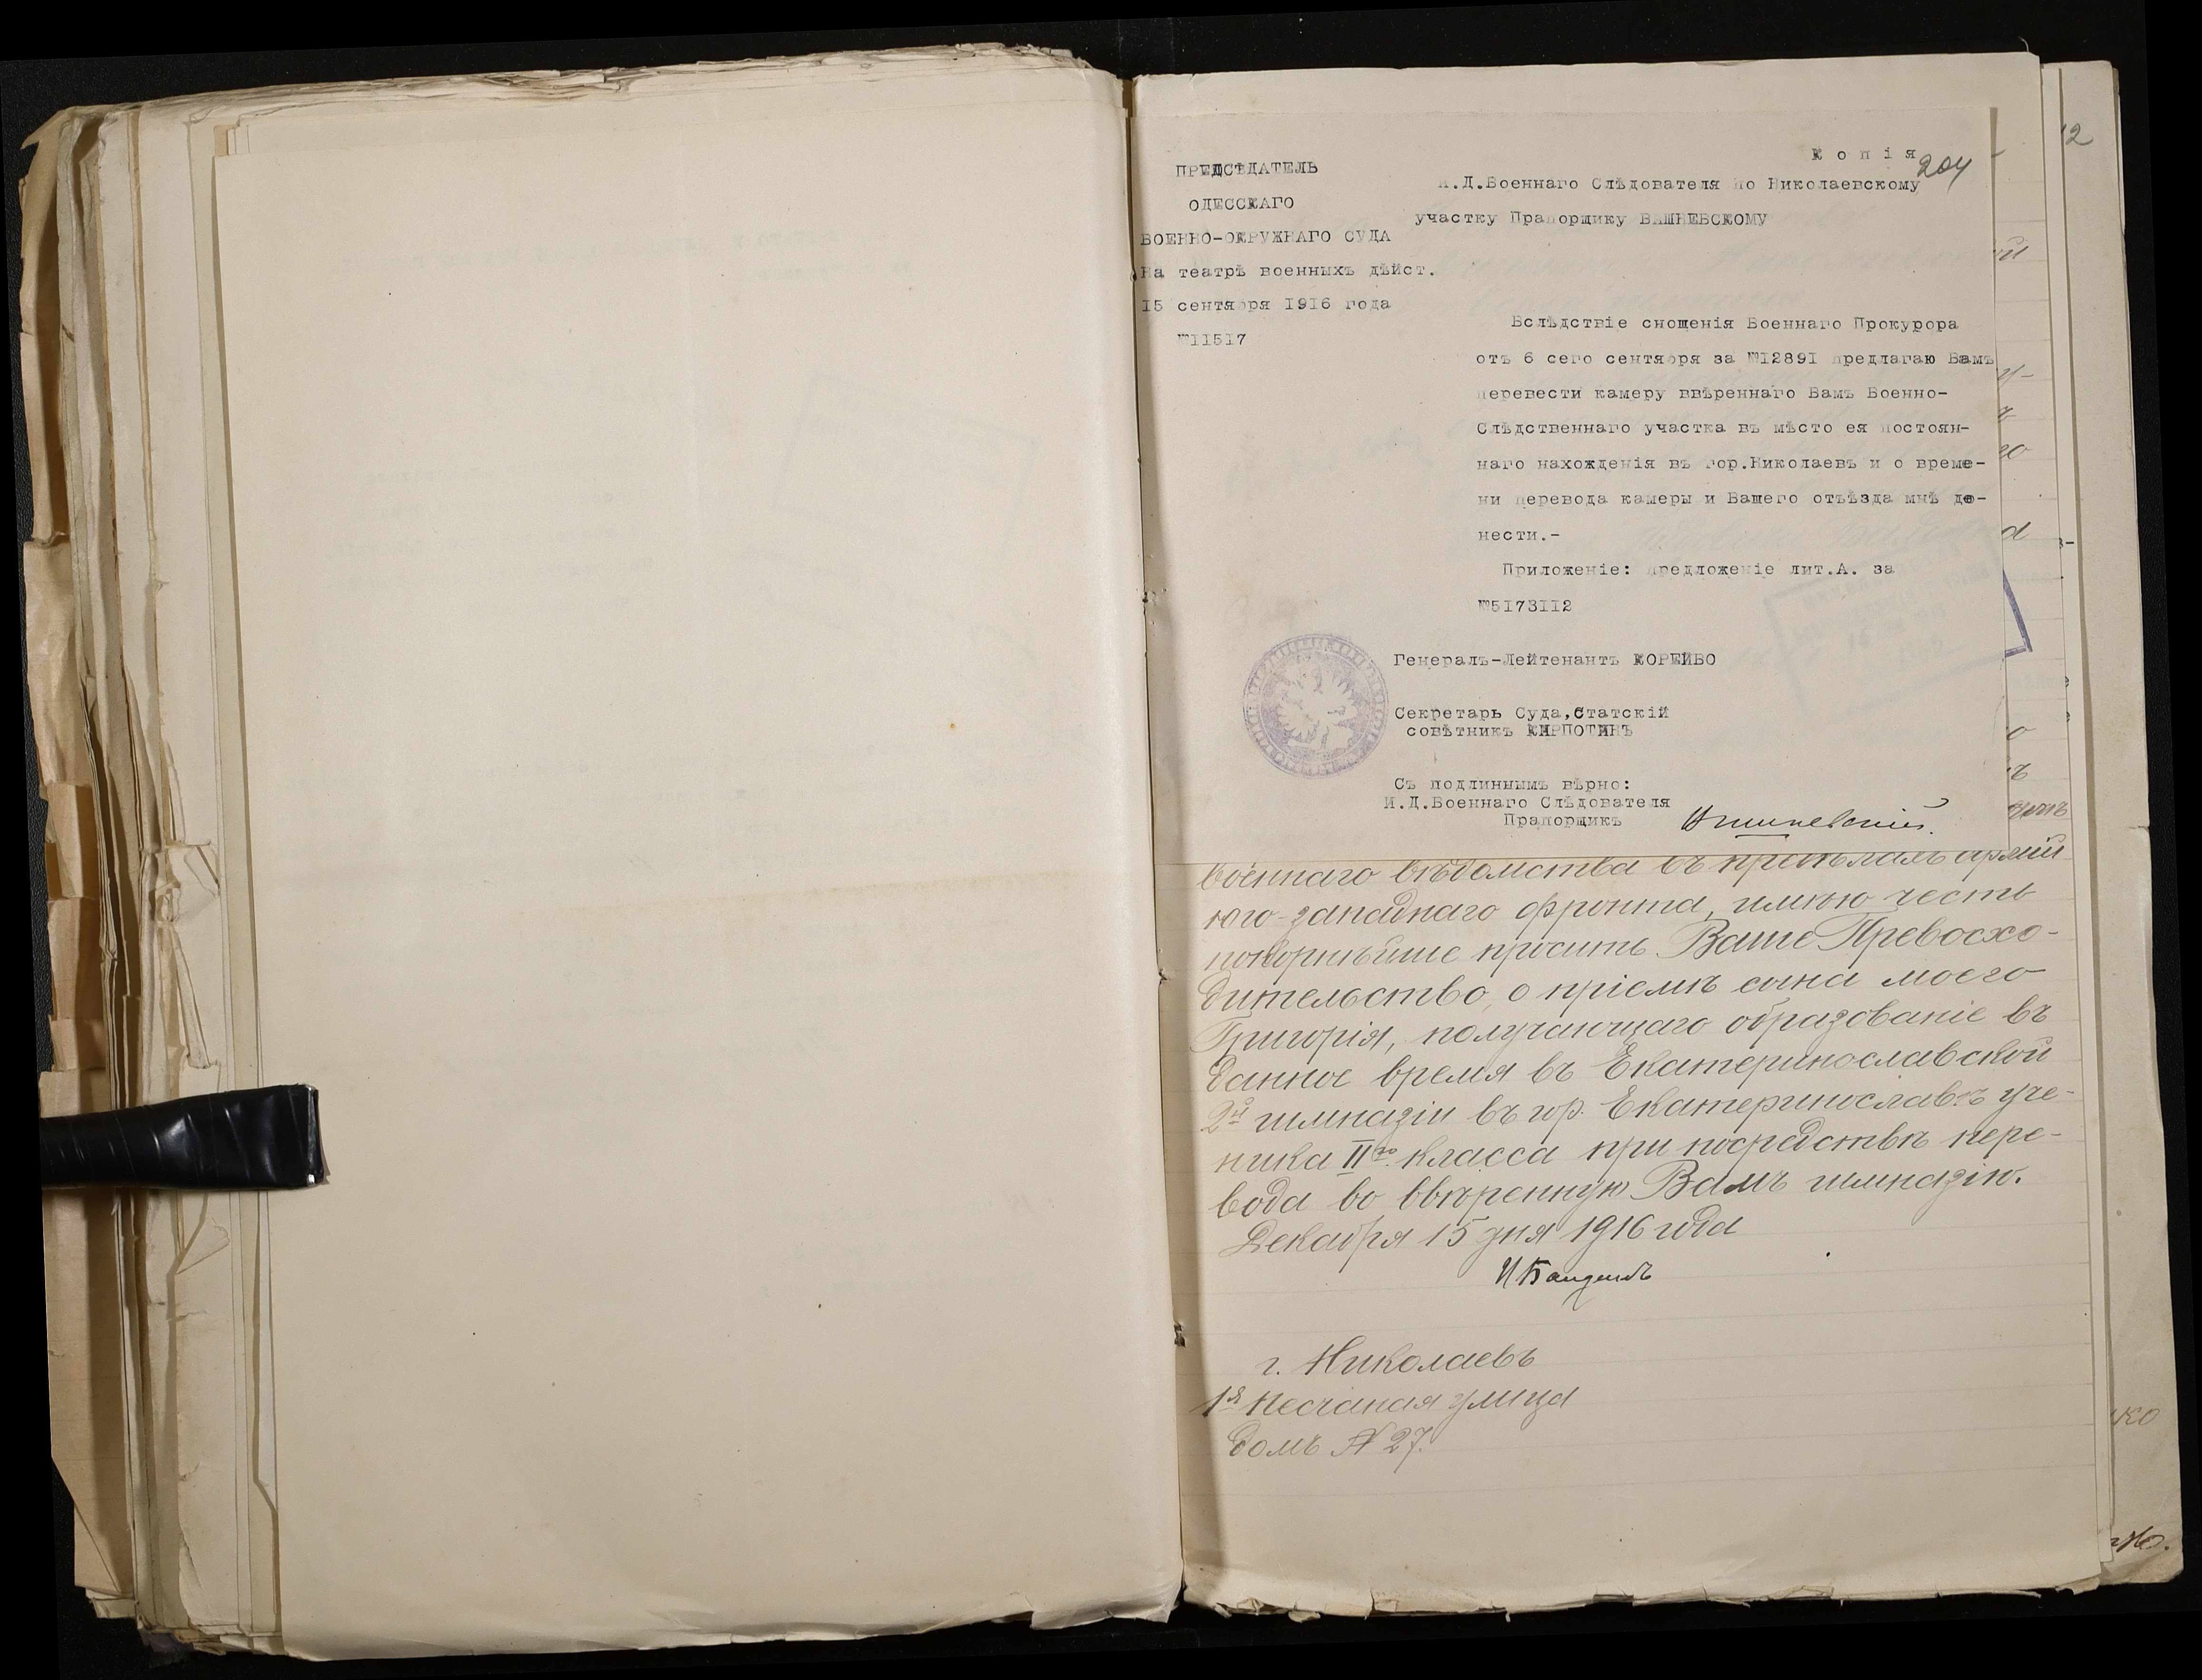 Копія
204
ПРЕДСѢДАТЕЛЬ
ОДЕССКАГО
ВОЕННО-ОКРУЖНАГО СУДА
На театрѣ военныхъ дѣйст.
15 сентября 1916 года
№11517
И.Д.Военнаго Слѣдователя по Николаевскому
участку Прапорщику ВИШНЕВСКОМУ
Вслѣдствіе сношенія Военнаго Прокурора
отъ 6 сего сентября за №12891 предлагаю Вамъ
перевести камеру ввѣреннаго Вамъ Военно-
Слѣдственнаго участка въ мѣсто ея постоян-
наго нахожденія въ гор.Николаевъ и о време-
ни перевода камеры и Вашего отъѣзда мнѣ до-
нести.-
Приложеніе: предложеніе лит.А. за
№5173112
Генералъ-Лейтенантъ КОРЕЙВО
Секретарь Суда,Статскій
совѣтникъ КИРПОТИНЪ
Съ подлиннымъ вѣрно:
И.Д.Военнаго Слѣдователя
Прапорщикъ Вишневскій.
военнаго вѣдомства въ предѣлахъ армій
юго-западнаго фронта, имѣю честь
покорнѣйше просить Ваше Превосхо-
дительство, о пріемѣ сына моего
Григорія, получающаго образованіе въ
данное время въ Екатеринославской
2й гимназіи въ гор. Екатеринославѣ уче-
ника IIго класса при посредствѣ пере-
вода во ввѣренную Вамъ гимназію.
Декабря 15 дня 1916 года
г. Николаевъ
1я Песчаная улица
домъ № 27.
12